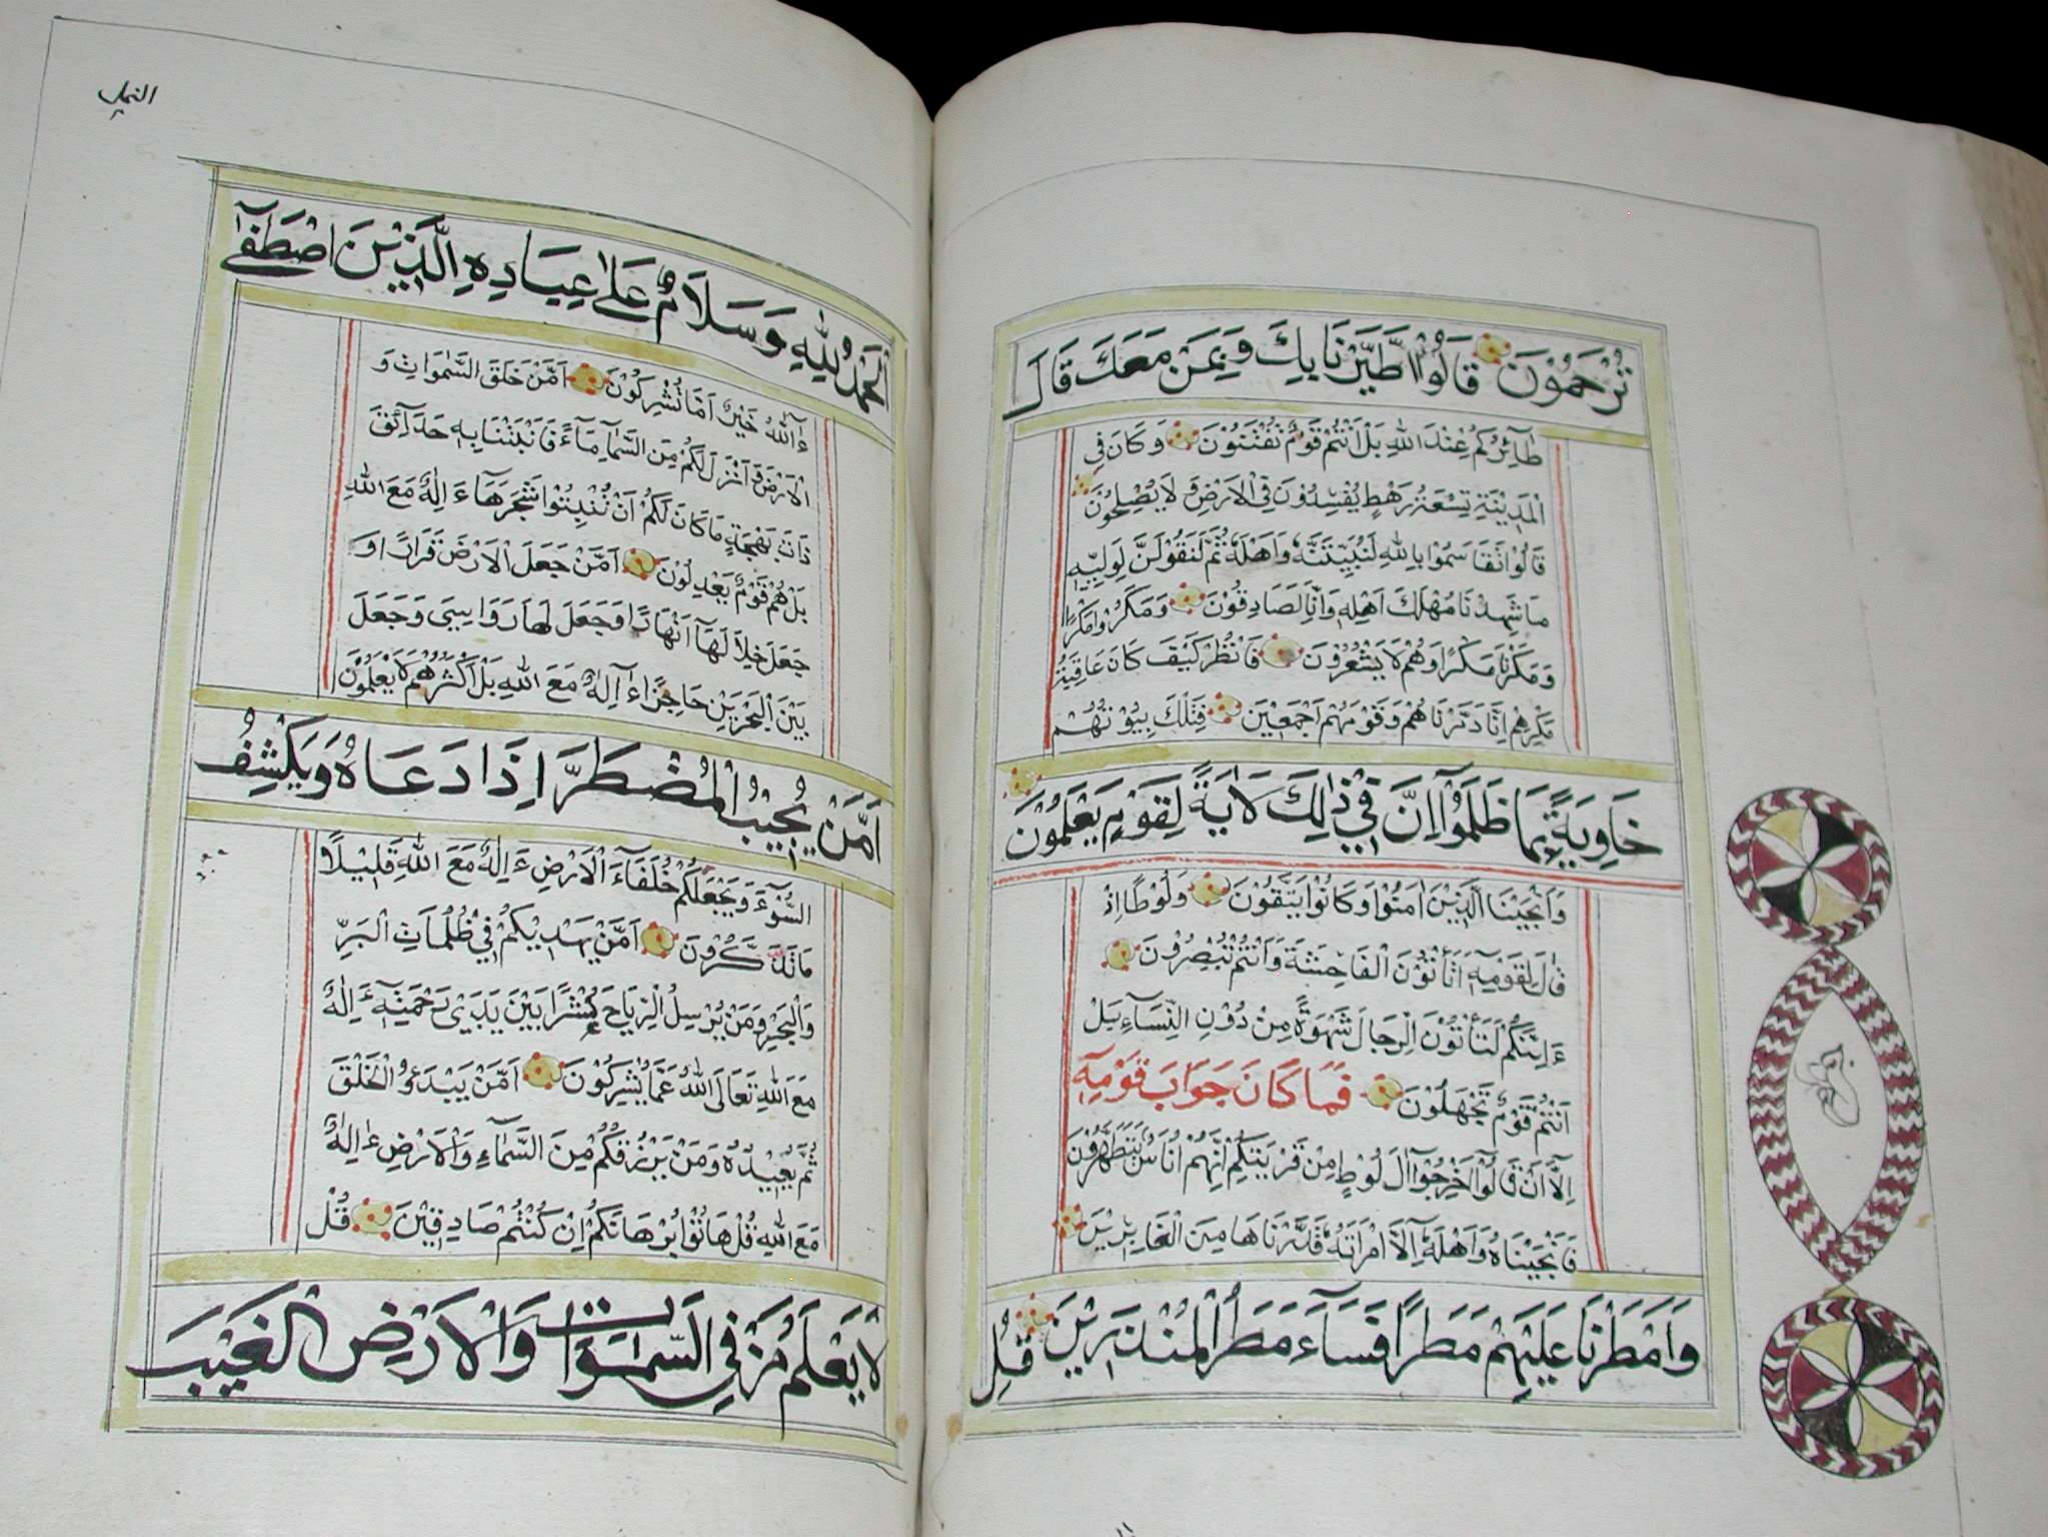 تُرْحَمُوْنَ قَالُوْا اطَّيَّرْنَا بِكَ وَبِمَنْ مَعَكَ قَالَ
طَآئِرُكُمْ عِنْدَ اللّٰهِ بَلْ اَنْتُمْ قَوْمٌ تُفْتَنُوْنَ وَكَانَ فِي
الْمَدِيْنَةِ تِسْعَةُ رَهْطٍ يُفْسِدُوْنَ فِي الْاَرْضِ وَلَا يُصْلِحُوْنَ
قَالُوْا تَقَاسَمُوْا بِاللّٰهِ لَنُبَيِّتَنَّهٗ وَاَهْلَهٗ ثُمَّ لَنَقُوْلَنَّ لِوَلِيِّهٖ
مَا شَهِدْنَا مَهْلِكَ اَهْلِهٖ وَاِنَّا لَصَادِقُوْنَ وَمَكَرُوْا مَكْرًا
وَمَكَرْنَا مَكْرًا وَهُمْ لَا يَشْعُرُوْنَ فَانْظُرْ كَيْفَ كَانَ عَاقِبَةُ
مَكْرِهِمْ اَنَّا دَمَّرْنَاهُمْ وَقَوْمَهُمْ اَجْمَعِيْنَ فَتِلْكَ بُيُوْتُهُمْ
خَاوِيَةً بِمَا ظَلَمُوْا اِنَّ فِيْ ذٰلِكَ لَاٰيَةً لِقَوْمٍ يَعْلَمُوْنَ
وَاَنْجَيْنَا الَّذِيْنَ اٰمَنُوْا وَكَانُوْا يَتَّقُوْنَ وَلُوْطًا اِذْ
قَالَ لِقَوْمِهٖ اَتَأْتُوْنَ الْفَاحِشَةَ وَاَنْتُمْ تُبْصِرُوْنَ
ءَاِنَّكُمْ لَتَأْتُوْنَ الرِّجَالَ شَهْوَةً مِنْ دُوْنِ النِّسَآءِ بَلْ
اَنْتُمْ قَوْمٌ تَجْهَلُوْنَ فَمَا كَانَ جَوَابَ قَوْمِهٖ
اِلَّا اَنْ قَالُوْا اَخْرِجُوْا اٰلَ لُوْطٍ مِنْ قَرْيَتِكُمْ اِنَّهُمْ اُنَاسٌ يَتَطَهَّرُوْنَ
فَاَنْجَيْنَاهُ وَاَهْلَهٗ اِلَّا امْرَاَتَهٗ قَدَّرْنَاهَا مِنَ الْغَابِرِيْنَ
وَاَمْطَرْنَا عَلَيْهِمْ مَطَرًا فَسَآءَ مَطَرُ الْمُنْذَرِيْنَ قُلِ
النمل
الْحَمْدُ لِلّٰهِ وَسَلَامٌ عَلٰى عِبَادِهِ الَّذِيْنَ اصْطَفٰى
ءٰاللّٰهُ خَيْرٌ اَمَّا تُشْرِكُوْنَ اَمَّنْ خَلَقَ السَّمٰوَاتِ وَ
الْاَرْضَ وَاَنْزَلَ لَكُمْ مِنَ السَّمَآءِ مَآءً فَاَنْبَتْنَا بِهٖ حَدَآئِقَ
ذَاتَ بَهْجَةٍ مَا كَانَ لَكُمْ اَنْ تُنْبِتُوْا شَجَرَهَا ءَاِلٰهٌ مَعَ اللّٰهِ
بَلْ هُمْ قَوْمٌ يَعْدِلُوْنَ اَمَّنْ جَعَلَ الْاَرْضَ قَرَارًا وَ
جَعَلَ خِلَالَهَا اَنْهَارًا وَجَعَلَ لَهَا رَوَاسِيَ وَجَعَلَ
بَيْنَ الْبَحْرَيْنِ حَاجِزًا ءَاِلٰهٌ مَعَ اللّٰهِ بَلْ اَكْثَرُهُمْ لَا يَعْلَمُوْنَ
اَمَّنْ يُجِيْبُ الْمُضْطَرَّ اِذَا دَعَاهُ وَيَكْشِفُ
السُّوْٓءَ وَيَجْعَلُكُمْ خُلَفَآءَ الْاَرْضِ ءَاِلٰهٌ مَعَ اللّٰهِ قَلِيْلًا
مَا تَذَكَّرُوْنَ اَمَّنْ يَهْدِيْكُمْ فِيْ ظُلُمَاتِ الْبَرِّ
وَالْبَحْرِ وَمَنْ يُرْسِلُ الرِّيَاحَ بُشْرًا بَيْنَ يَدَيْ رَحْمَتِهٖ ءَاِلٰهٌ
مَعَ اللّٰهِ تَعَالَى اللّٰهُ عَمَّا يُشْرِكُوْنَ اَمَّنْ يَبْدَؤُا الْخَلْقَ
ثُمَّ يُعِيْدُهٗ وَمَنْ يَرْزُقُكُمْ مِنَ السَّمَآءِ وَالْاَرْضِ ءَاِلٰهٌ
مَعَ اللّٰهِ قُلْ هَاتُوْا بُرْهَانَكُمْ اِنْ كُنْتُمْ صَادِقِيْنَ قُلْ
لَا يَعْلَمُ مَنْ فِي السَّمٰوَاتِ وَالْاَرْضِ الْغَيْبَ